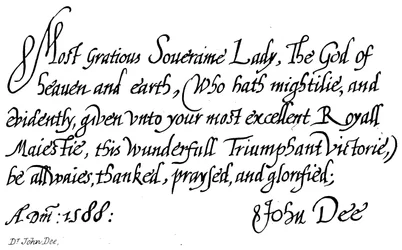 Most Gratious Soueraine Lady, The God of
heauen and earth, (Who hath mightilie, and
euidently, giuen vnto your most excellent Royall
Maiestie, this wunderfull Triumphant Victorie,)
be allwaies, thanked, praysed, and glorified;
A. Dni: 1588: John Dee
Dr John Dee.